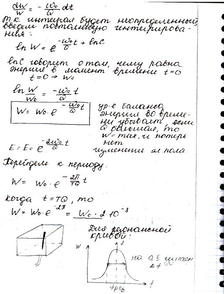 dW/W = -ω₀/Q dt
т.к. интеграл будет неопределенный
введем постоянную интегрирова-
ния:
ln W = e^(-ω₀/Q t) + ln C
ln C говорит о том, чему равна
энергия в момент времени t=0
t=0 → W₀
ln W/W₀ = -ω₀/Q t
W = W₀ e^(-ω₀/Q t)
ур-е баланса
энергии во време-
ни убывает, если
Q большая, то
W = max, и потерь
нет
E = E₀ e^(-2ω₀/Q t)
изменения эл поля
Перейдем к периоду
W = W₀ · e^(-2π/TQ t)
когда t = TQ, то
W = W₀ · e^(-2π) = W₀ · 2 · 10⁻³
Для резонансной
кривой:
W
на 0,5